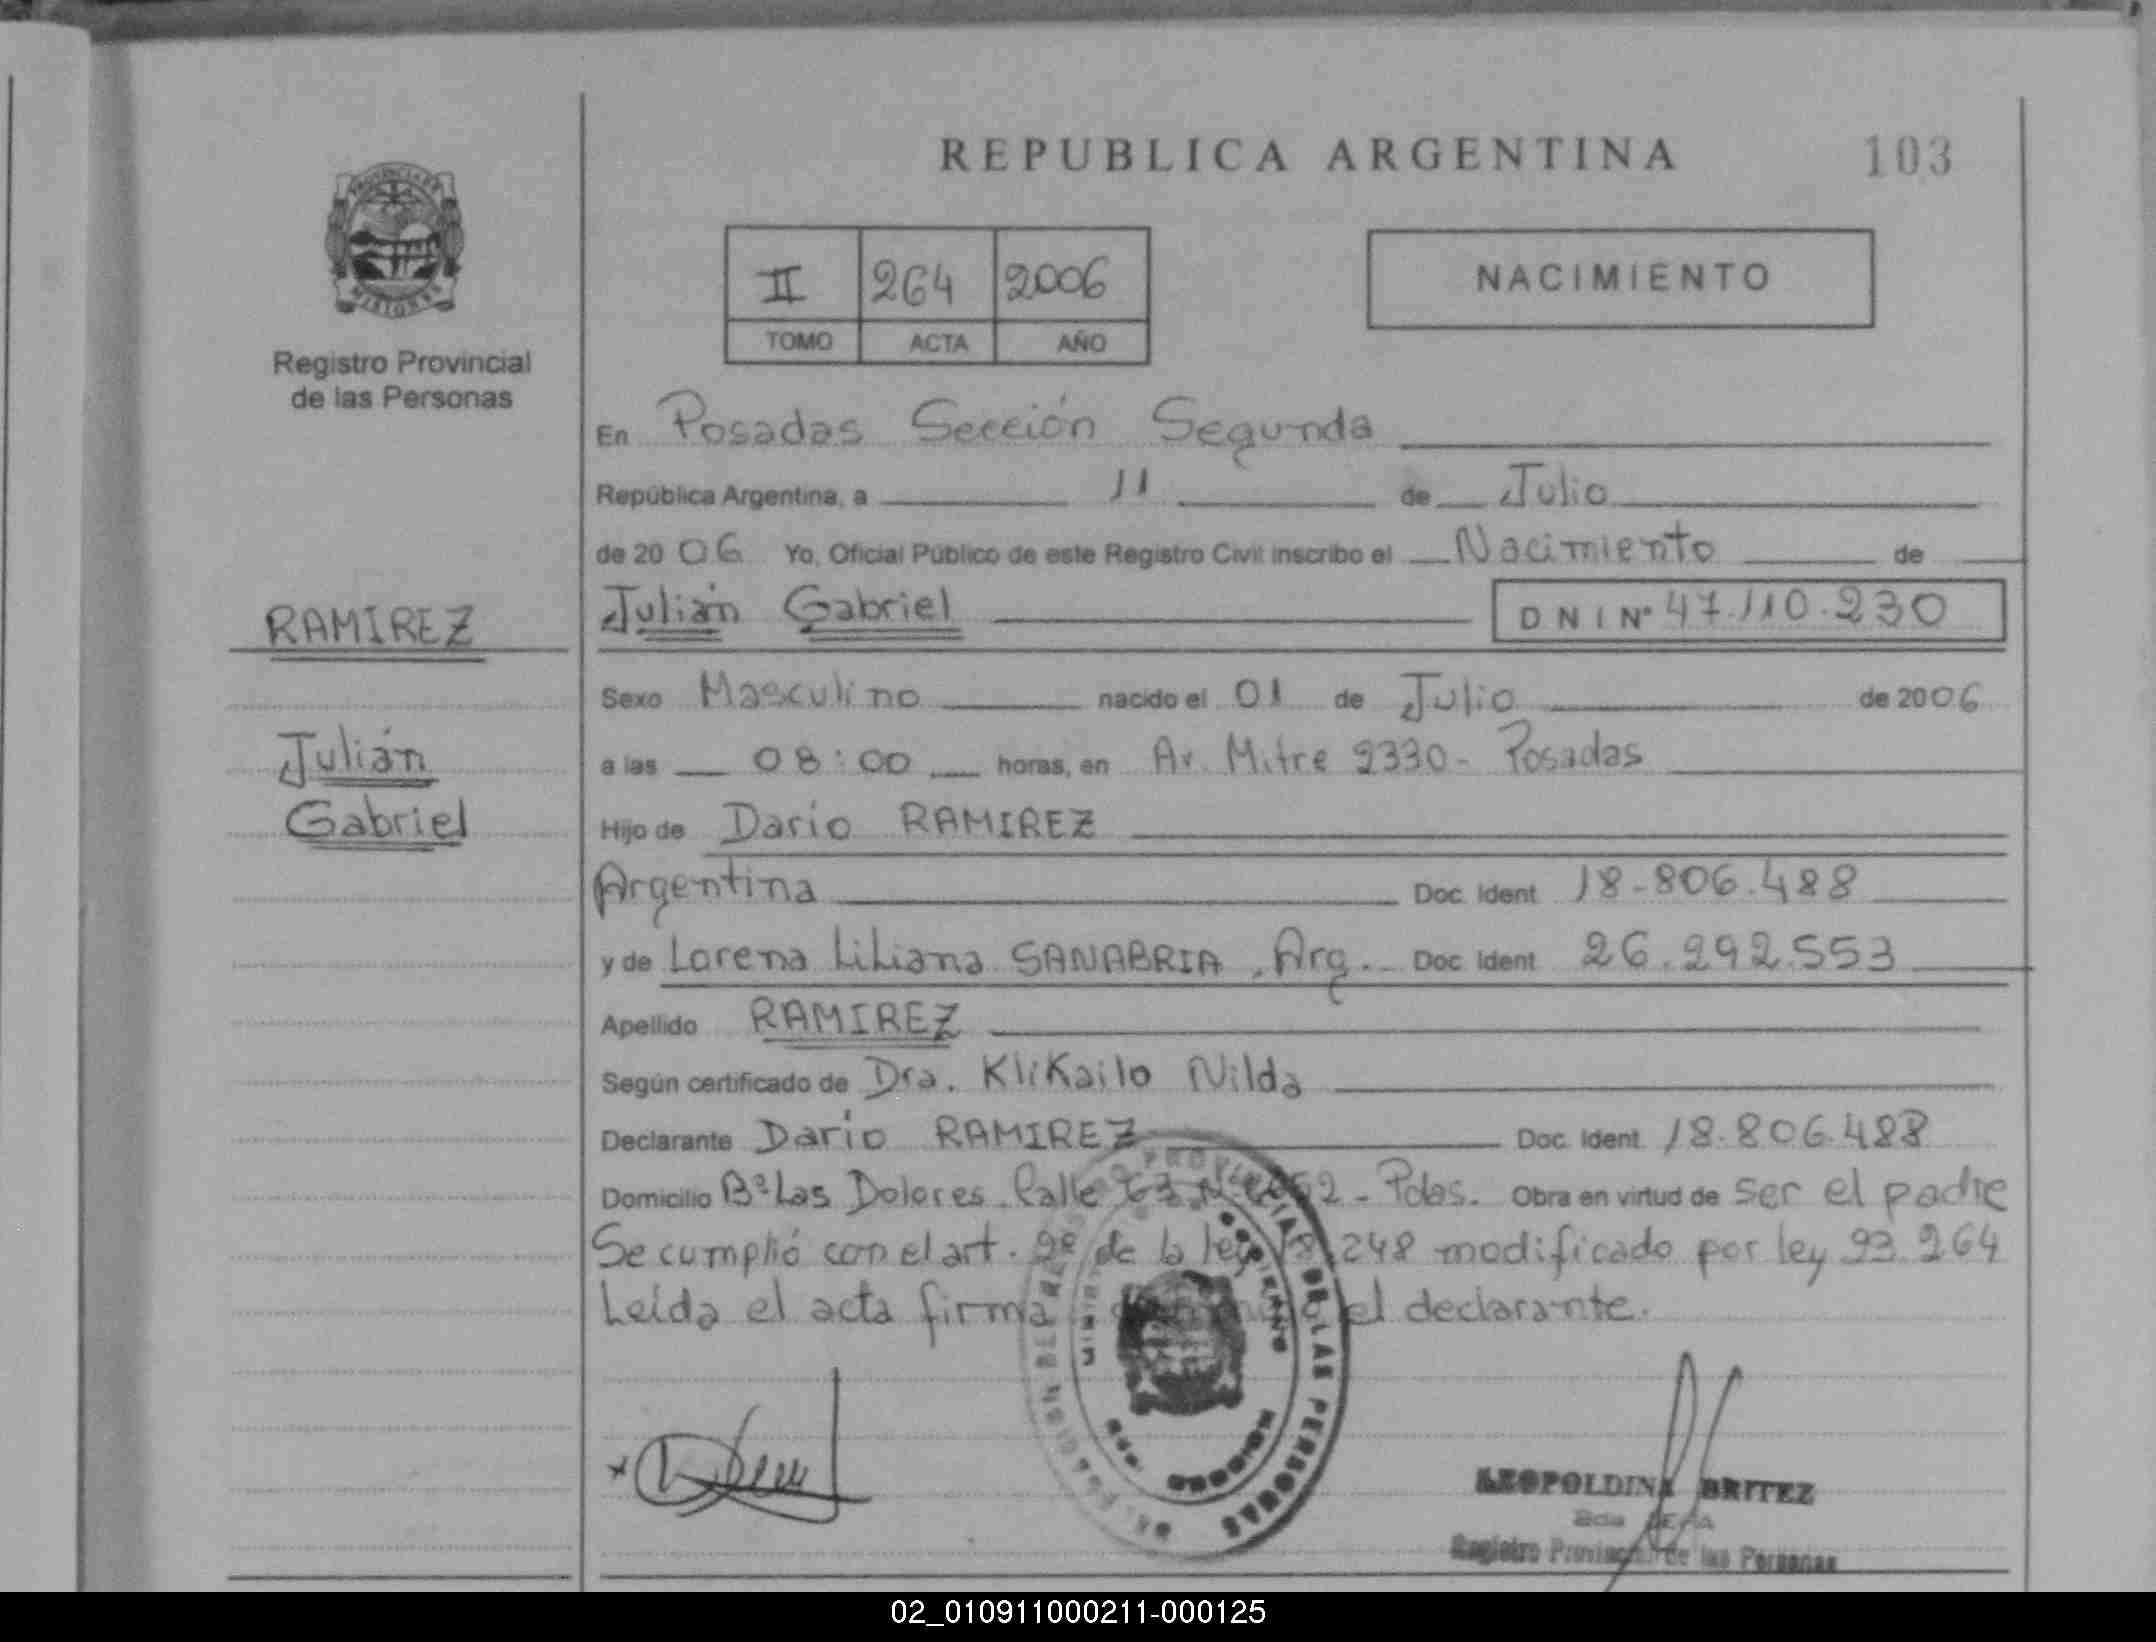 REPUBLICA ARGENTINA 103
PROVINCIA DE
MISIONES
Registro Provincial
de las Personas
II 264 2006
TOMO ACTA AÑO
NACIMIENTO
En Posadas Sección Segunda
República Argentina, a 11 de Julio
de 2006 Yo, Oficial Público de este Registro Civil inscribo el Nacimiento de
RAMIREZ
Julián Gabriel DNI Nº 47.110.230
Sexo Masculino nacido el 01 de Julio de 2006
Julián
a las 08:00 horas, en Av. Mitre 2330- Posadas
Gabriel
Hijo de Darío RAMIREZ
Argentina Doc. Ident 18-806.488
y de Lorena Liliana SANABRIA, Arg. Doc Ident 26.292.553
Apellido RAMIREZ
Según certificado de Dra. KliKailo Nilda
Declarante Darío RAMIREZ Doc. Ident. 18.806.488
Domicilio Bº Las Dolores. Calle - Pdas. Obra en virtud de ser el padre
Se cumplió con el art. de la ley 18.248 modificado por ley 23.264
Leída el acta firma el declarante.
DE LAS PERSONAS
MISIONES
LEOPOLDINA BRITEZ
2da JEFA
Registro Provincial de las Personas
02_010911000211-000125